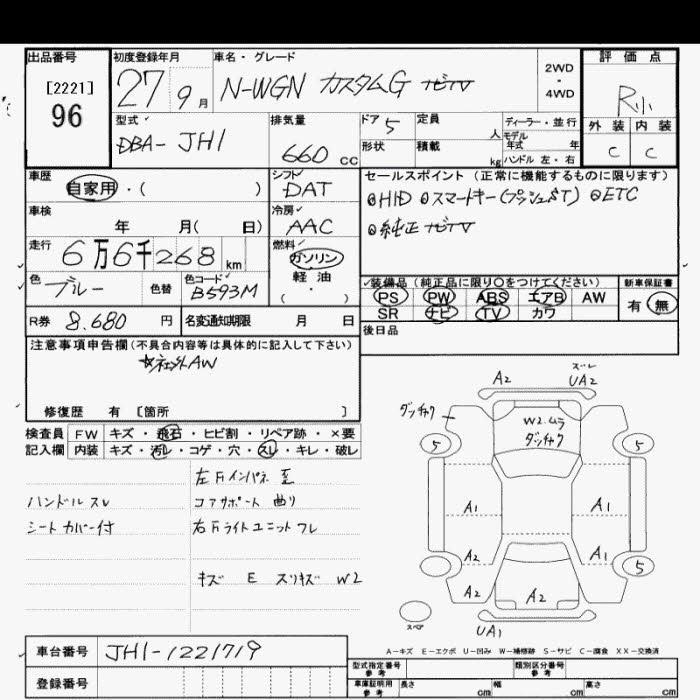 出品番号 初度登録年月 車名・グレード 評価点
[2221] 96
27 9月 N-WGN カスタムG ナビTV
2WD・4WD
R小
型式 DBA-JH1
排気量 660cc
ドア 5 定員 人
形状 積載 kg
ディーラー・並行
モデル年式 年
ハンドル 左・右
外装 内装
C C
車歴 自家用・( )
シフト DAT
セールスポイント(正常に機能するものに限ります)
◎HID ◎スマートキー(プッシュST) ◎ETC
◎純正ナビTV
車検 年 月( 日)
冷房 AAC
走行 6万6千268km
燃料 ガソリン
軽油
( ・ )
色 ブルー 色替 色コード B593M
装備品(純正品に限り○をつけてください)
PS PW ABS エアB AW
SR ナビ TV カワ
新車保証書
有 無
R券 8,680円 名変通知期限 月 日
後日品
注意事項申告欄(不具合内容等は具体的に記入して下さい)
AW
修復歴 有 [箇所 ]
検査員記入欄
FW キズ・飛石・ヒビ割・リペア跡・×要
内装 キズ・汚レ・コゲ・穴・スレ・キレ・破レ
左Fインパネ 至
ハンドル スレ
コアサポート 曲り
シートカバー付
右Fライトユニット フレ
キズ E スリキズ W2
A2
ズレ
UA2
ダッチャク
W2.ムラ
ダッチャク
5 5
A1 A1
A2 A1
5
A2 A2
スペア
UA1
A-キズ E-エクボ U-凹み W-補修跡 S-サビ C-腐食 XX-交換済
車台番号 JH1-1221719
登録番号
型式指定番号 参考 類別区分番号 参考
車庫証明用 参考 長さ cm 幅 cm 高さ cm